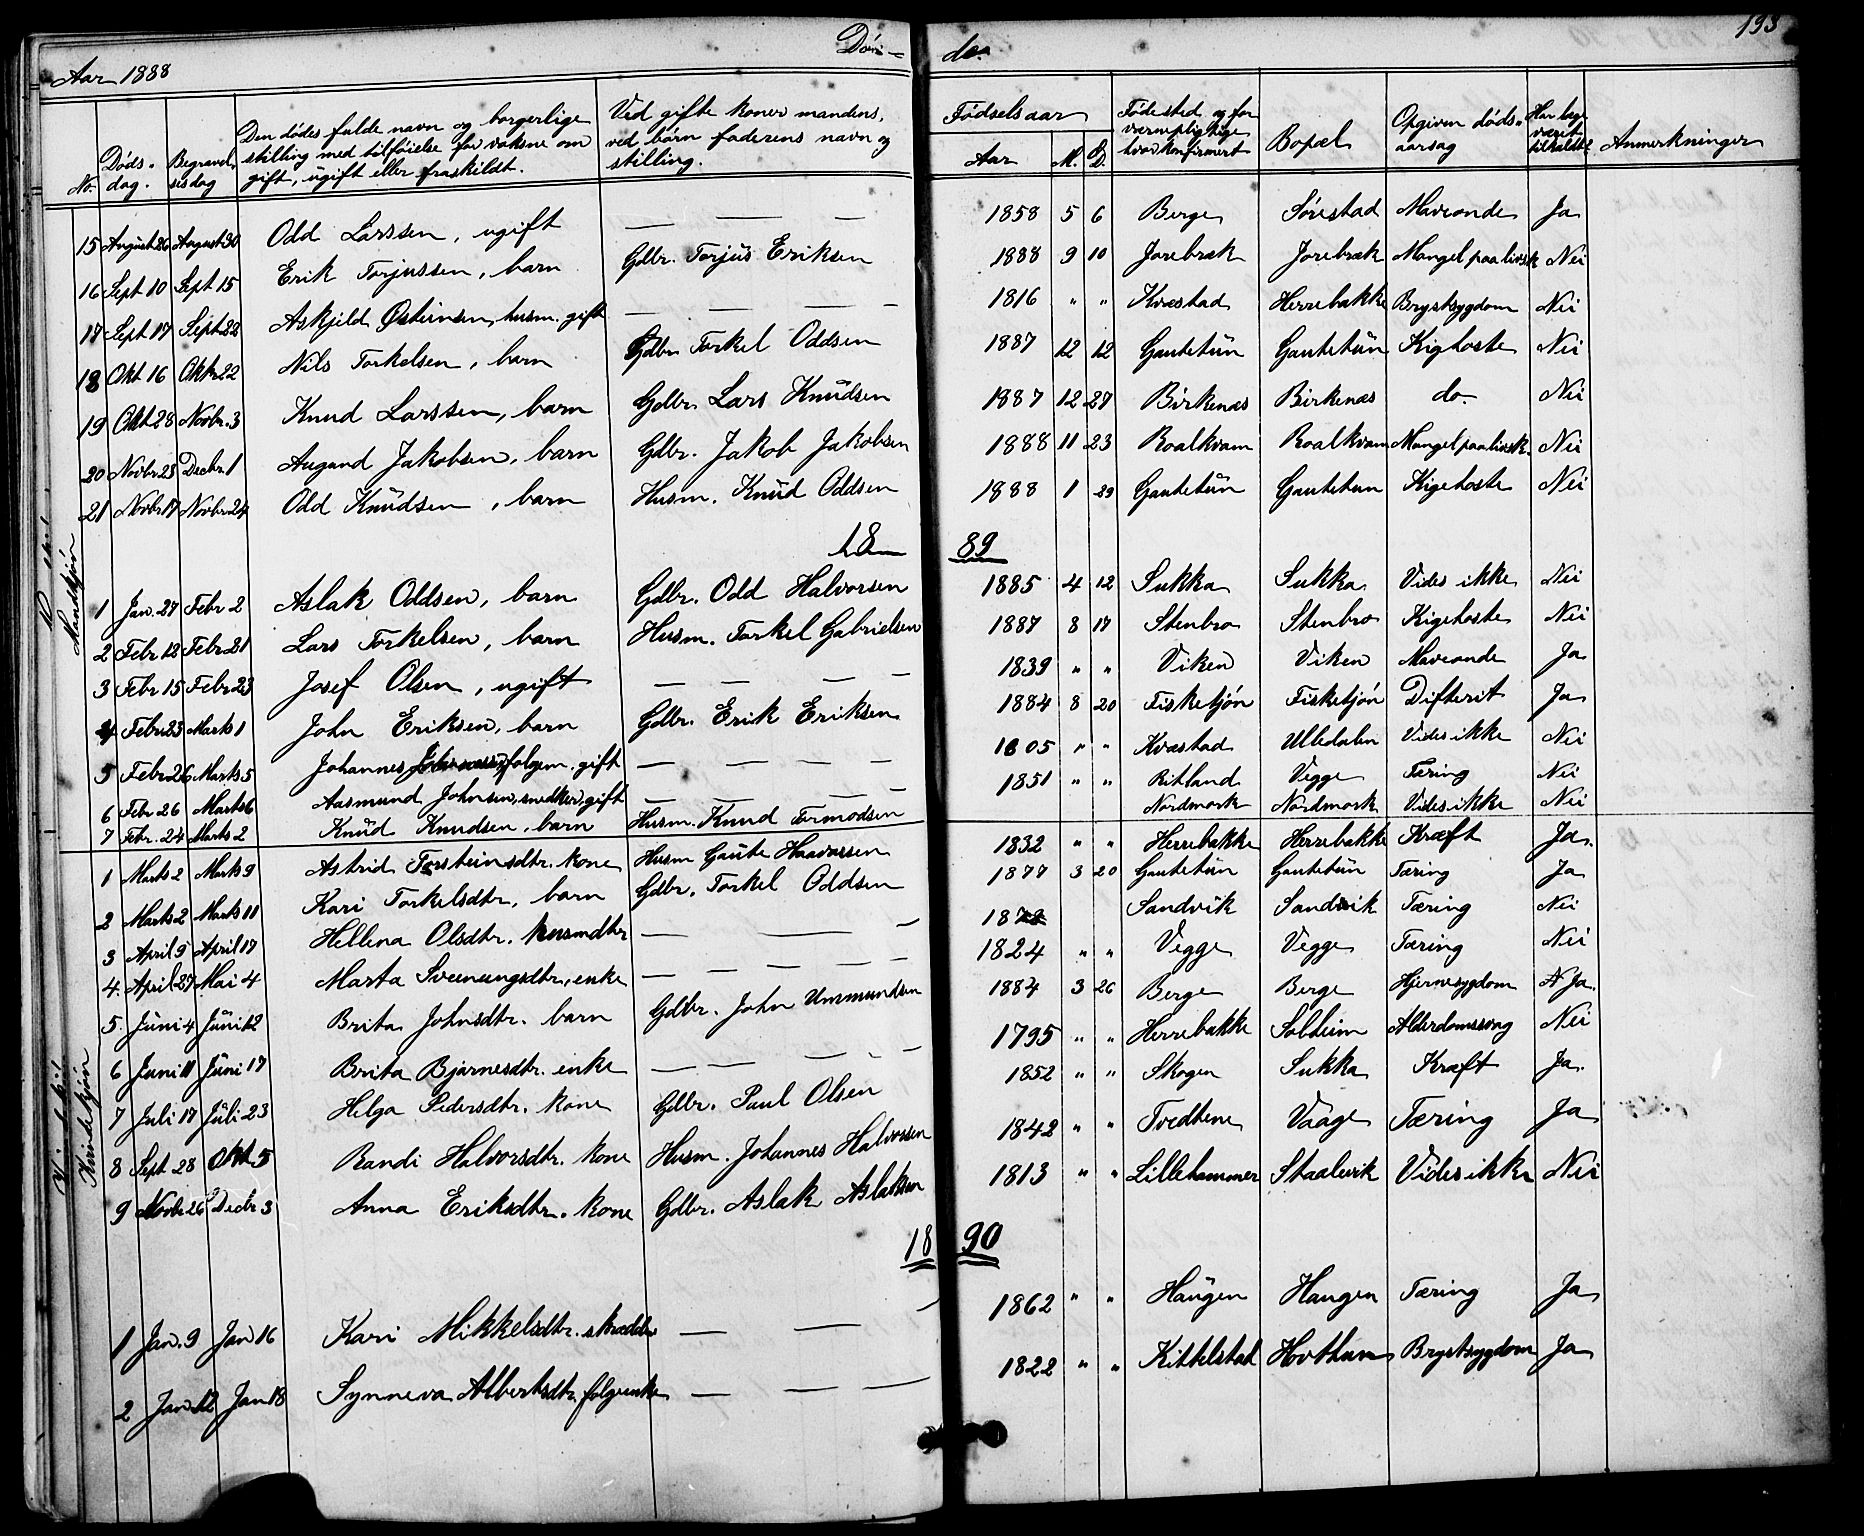 193
Dø- de.
Aar 1888
No. Døds-dag. Begravelsesdag Den dödes fulde navn og borgerlige stilling med tilföielse for voksne om gift, ugift eller fraskildt. Ved gifte koner mandens, ved børn faderens navn og stilling. Fødselsaar Aar M. D. Fødested og for værnepligtige hvor konfirmert Bopæl Opgiven döds-aarsag Har læge været tilkaldt? Anmerkninger
15 August 26 August 30 Odd Larssen, ugift — — — 1858 5 6 Berge Sørestad Maveonde Ja
16 Sept 10 Sept 15 Erik Torjussen, barn Gdbr. Torjus Eriksen 1888 9 10 Jorebræk Jorebræk Mangel paa livsk Nei
17 Sept 17 Sept 22 Askjeld Østeinsen, husm. gift — — — — 1816 " " Kvæstad Herrebakke Brystsygdom Nei
18 Okt 16 Oktr 22 Nils Torkelsen, barn Gdbr Torkel Oddsen 1887 12 12 Gautetün Gautetün Kighoste Nei
19 Okt 28 Novbr. 3 Knud Larssen, barn Gdbr. Lars Knüdsen 1887 12 27 Birkenæs Birkenæs do. Nei
20 Novbr 23 Decbr 1 Augund Jakobsen, barn Gdbr. Jakob Jakobsen 1888 11 23 Roalkvam Roalkvam Mangel paa livsk. Nei
21 Novbr 17 Novbr 24 Odd Knüdsen, barn Husm. Knüd Oddsen 1888 1 29 Gautetün Gautetun Kigehoste Nei
18 89
Mandkjøn
1 Jan. 27 Febr 2 Aslak Oddsen, barn Gdbr. Odd Halvorsen 1885 4 12 Sukka Sukka Vides ikke Nei
2 Febr 12 Febr 21 Lars Torkelsen, barn Husm. Torkel Gabrielsen 1887 8 17 Stenbro Stenbro Kigehoste Nei
3 Febr 15 Febr 23 Josef Olsen, ugift — — — — 1839 " " Viken Viken Maveonde Ja
4 Febr 23 Marts 1 John Eriksen, barn Gdbr. Erik Eriksen 1884 8 20 Fisketjón Fisketjón Difterit Ja
5 Febr 26 Marts 5 Johannes folgem. gift — — — — 1805 " " Kvæstad Ulledalen Vides ikke Nei
6 Febr 26 Marts 6 Aasmund Johnsen, snedker, gift — — — — 1851 " " Ritland Vegge Tæring Nei
7 Febr. 24 Marts 2 Knüd Knudsen, barn Husm. Knud Tormodsen Nordmork Nordmork Vides ikke Nei
Kvindekjøn
1 Marts 2 Marts 9 Astrid Torsteinsdtr. kone Husm Gaute Haavarsen 1832 " " Herrebakke Herrebakke Kræft Ja.
2 Marts 2 Marts 11 Kari Torkelsdtr, barn Gdbr. Torkel Oddsen 1877 3 20 Gautetün Gautetün Tæring Ja
3 April 9 April 17 Hellena Olsdtr. husmdtr — — — Sandvik Sandvik Tæring Nei
4. April 27 Mai 4 Marta Sveinungsdtr, enke — — — — — 1824 " " Vegge Vegge Tæring Nei
5. Jüni 4 Jüni 12 Brita Johnsdtr. barn Gdbr. John Ummundsen 1884 3 26 Berge Berge Hjernesygdom Ja.
6 Juni 11 Jüni 17 Brita Bjarnesdtr. enke — — — — — 1795 " " Herrebakke Solheim Alderdomssvag Nei
7 Juli 17 Jüli 23 Helga Pedersdtr. kone Gdbr. Paul Olsen 1852 " " Skogen Sukka Kræft Ja.
8 Sept. 28 Okt 5 Randi Halvorsdtr. kone Husm. Johannes Halvorsen 1842 " " Tvedtene Vaage Tæring Ja
9 Novbr 26 Decbr 3 Anna Eriksdtr. kone Gdbr. Aslak Aslaksen 1813 " " Lillehammer Staalevik Vides ikke Nei
18 90
1 Jan. 9 Jan 16 Kari Mikkelsdtr. skrædder — — — 1862 " " Haügen Haugen Tæring Ja
2 Jan 12 Jan 18 Synneva Albertsdtr. folgeenke — — — 1822 " " Kittelstad Hovthun Brystsygdom Ja